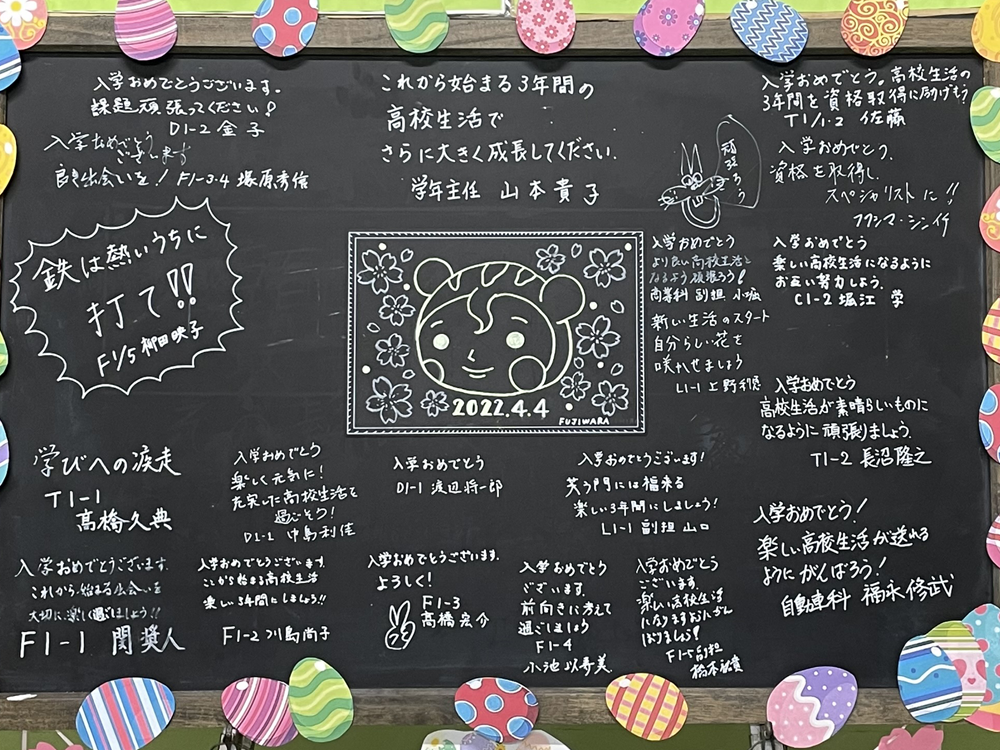 入学おめでとうございます。
課題頑張ってください!
D1-2 金子
入学おめでとう
ございます
良き出会いを! F1-3.4 塚原秀信
これから始まる3年間の
高校生活で
さらに大きく成長してください.
学年主任 山本貴子
頑張ろう
入学おめでとう。高校生活の
3年間を資格取得に励げもう
T1/1.2 佐藤
入学おめでとう.
資格を取得し,
スペシャリストに!!
フクシマ・シンイチ
鉄は熱いうちに
打て!!
F1/5 柳田映子
2022.4.4
FUJIWARA
入学おめでとう
より良い高校生活と
なるよう頑張ろう!
商業科 副担 小堀
新しい生活のスタート
自分らしい花を
咲かせましょう
L1-1 上野
入学おめでとう
楽しい高校生活になるように
お互い努力しよう.
C1-2 堀江 学
入学おめでとう
高校生活が素晴らしいものに
なるように頑張りましょう.
T1-2 長沼隆之
学びへの疾走
T1-1
高橋久典
入学おめでとう
楽しく元気に!
充実した高校生活を
過ごそう!
D1-2 中島利佳
入学おめでとう
D1-1 渡辺将一郎
入学おめでとうございます!
笑う門には福来る
楽しい3年間にしましょう!
L1-1 副担 山口
入学おめでとう!
楽しい高校生活が送れる
ようにがんばろう!
自動車科 福永修武
入学おめでとうございます.
これから始まる出会いを
大切に楽しく過ごしましょう!!
F1-1 関 奨人
入学おめでとうございます.
ここから始まる高校生活
楽しい3年間にしましょう!!
F1-2 川島尚子
入学おめでとうございます.
よろしく!
F1-3
高橋宏介
入学おめでとう
ございます.
前向きに考えて
過ごしましょう
F1-4
小池
入学おめでとう
ございます.
楽しい高校生活
F1-5 副担
橋本